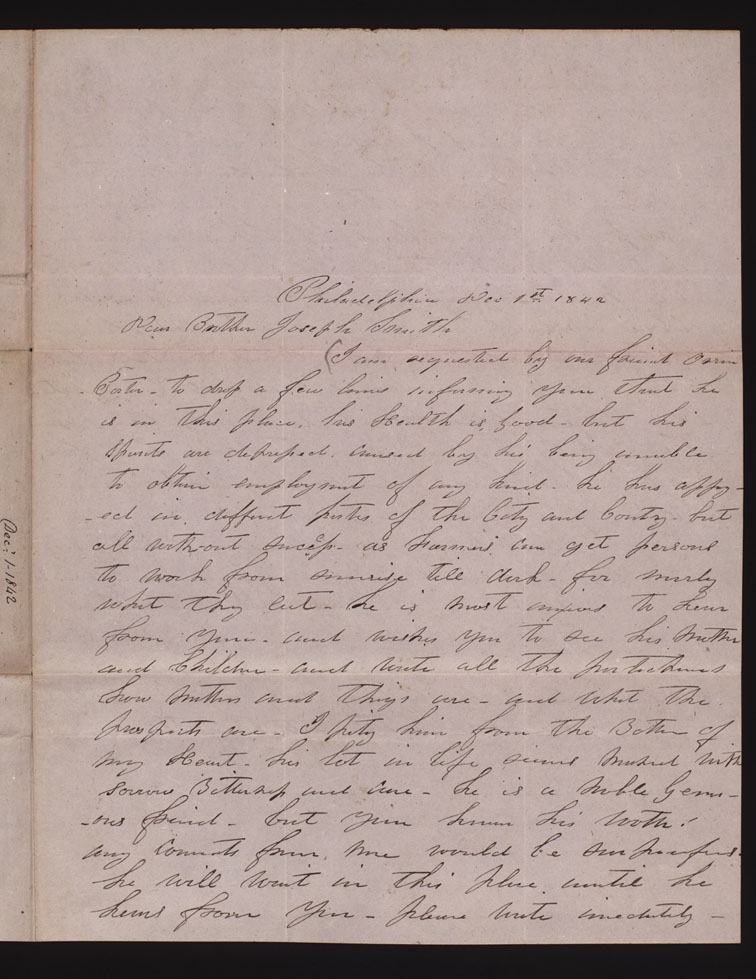 Philadelphia Dec 1st 1842
Dear Brother Joseph Smith
I am requested by our friend Orrin
Porter - to drop a few lines informing you that he
is in this place, his Health is good - but his
spirits are depressed, caused by his being unable
to obtain employment of any kind - he has apply-
-ed in different parts of the City and County - but
all without success - as Farmers can get persons
to work from sunrise till dark - for merely
what they eat - he is most anxious to hear
from you - and wishes you to see his Mother
and Children - and write all the particulars
how matters and things are - and what the
prospects are - I pity him from the Bottom of
my Heart - his lot in life seems marked with
sorrow Bitterness and care - he is a noble Gener-
-ous friend - but you know his worth!
any comments from me would be
he will wait in this place until he
hears from you - please write
Dec: 1-1842